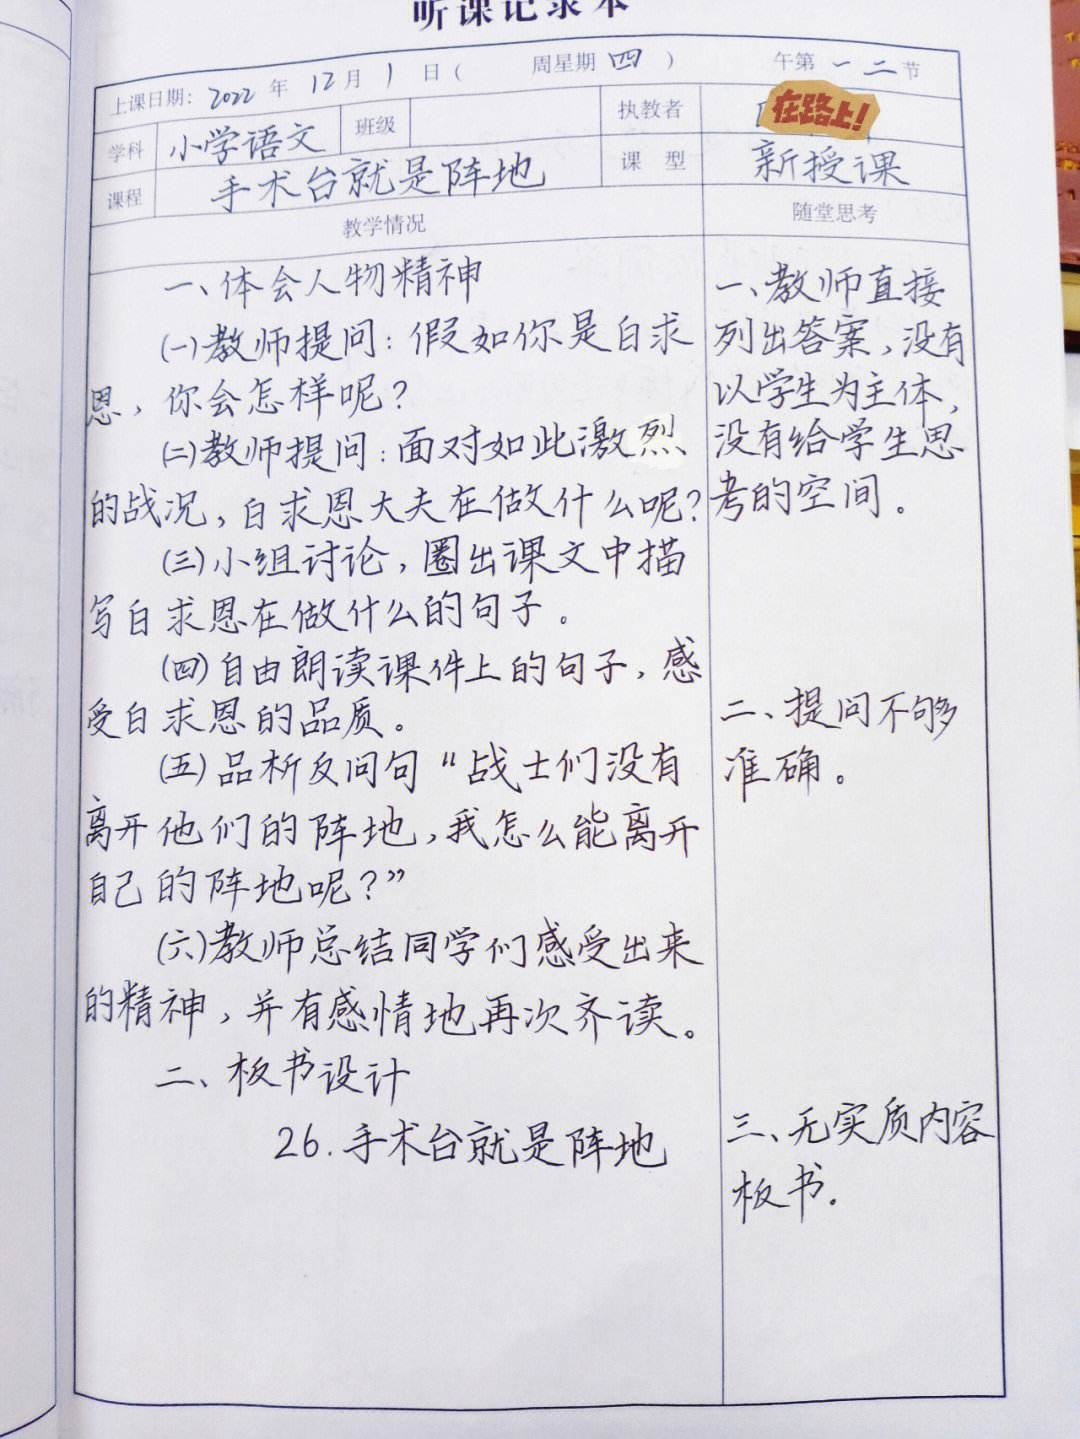 听课记录本
上课日期: 2022 年 12 月 1 日 ( 周星期 四 ) 午第 一 二 节
学科 小学语文 班级 执教者 在路上!
课程 手术台就是阵地 课 型 新授课
教学情况 随堂思考
一、体会人物精神
(一)教师提问: 假如你是白求
恩, 你会怎样呢?
(二)教师提问: 面对如此激烈
的战况, 白求恩大夫在做什么呢?
(三)小组讨论, 圈出课文中描
写白求恩在做什么的句子。
(四)自由朗读课件上的句子, 感
受白求恩的品质。
(五)品析反问句“战士们没有
离开他们的阵地, 我怎么能离开
自己的阵地呢?”
(六)教师总结同学们感受出来
的精神, 并有感情地再次齐读。
二、板书设计
26.手术台就是阵地
一、教师直接
列出答案, 没有
以学生为主体,
没有给学生思
考的空间。
二、提问不够
准确。
三、无实质内容
板书.